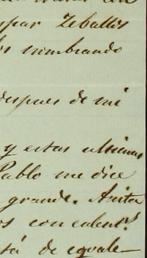 spar Zeballos
os nombrando
despues de mi
y estas ultimas
Pablo me dice
grande. Anita
os con calent.s
tá de igual